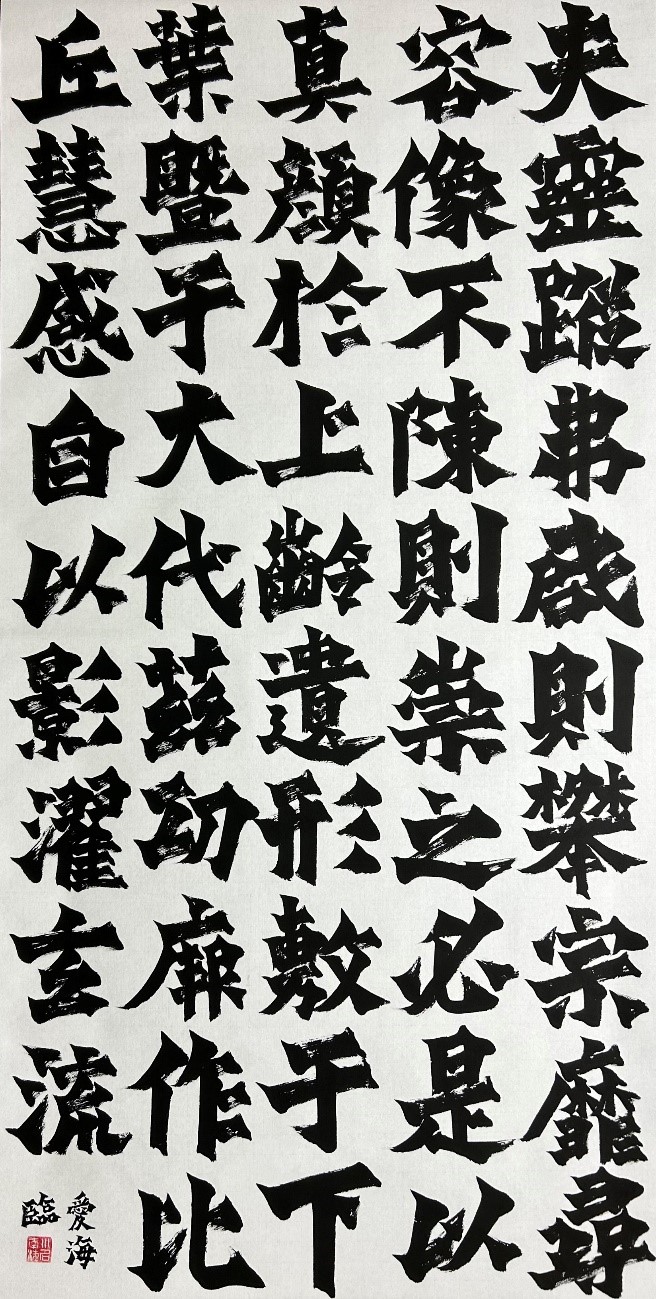 夫靈蹤弗啟則攀宗靡尋
容像不陳則崇之必是以
真顏於上齡遺形敷于下
葉暨于大代茲功厥作比
丘慧感自以影濯玄流
愛海
臨